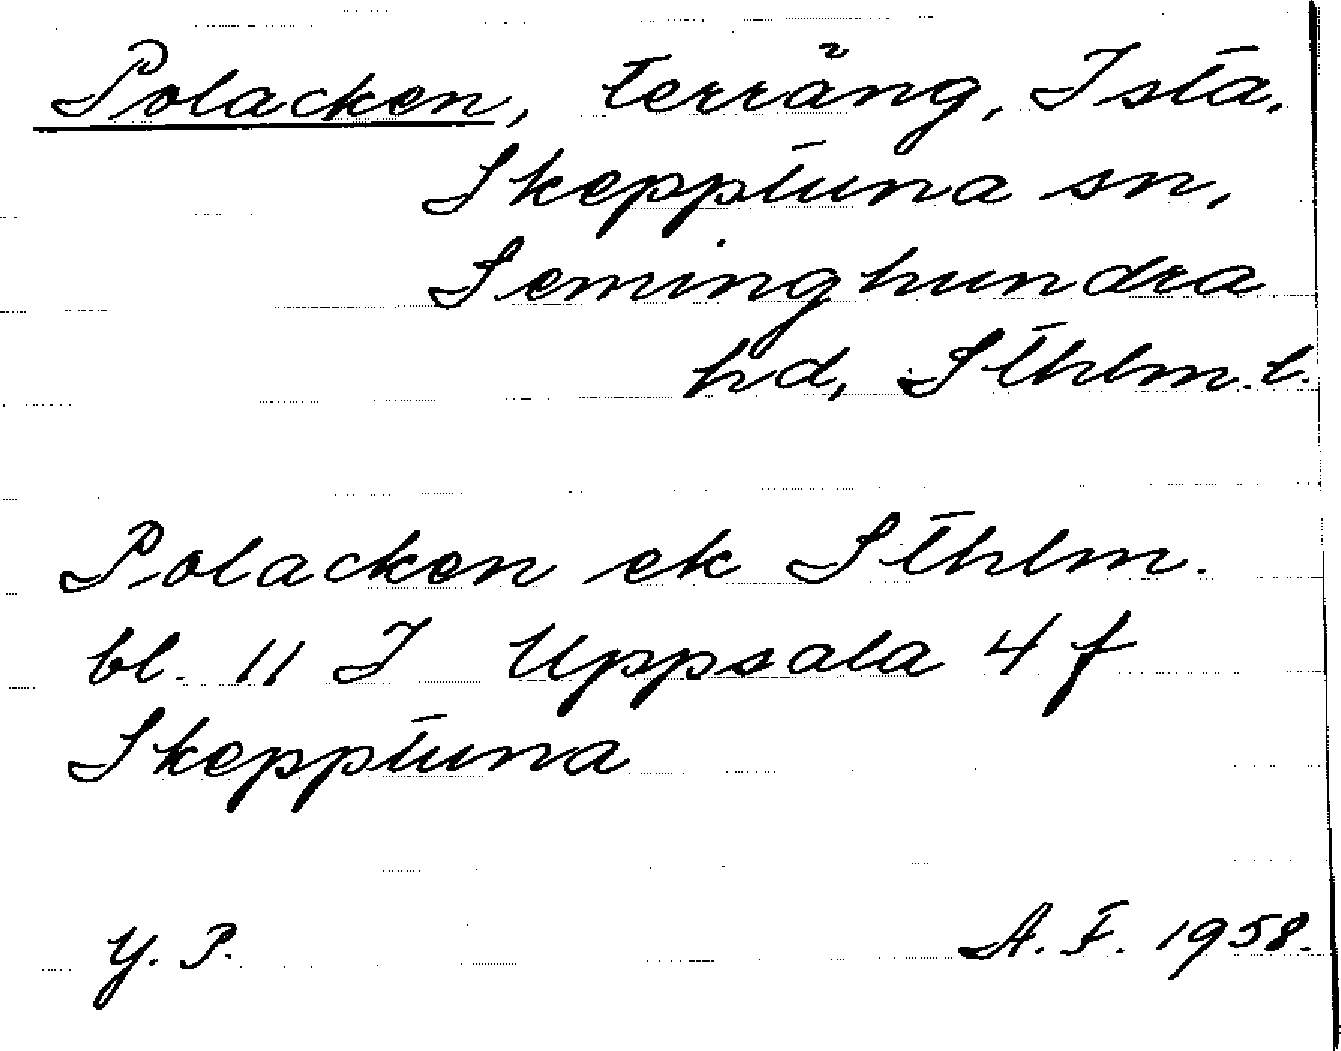 Polacken, terräng, Ista,
Skepptuna sn,
Seminghundra
hd, Sthlm. l.
Polacken ek Sthlm.
bl. 11 I Uppsala 4 f
Skepptuna
Y. P. A. F. 1958.